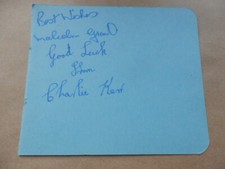 Best Wishes
Malcolm
Good Luck
from
Charlie